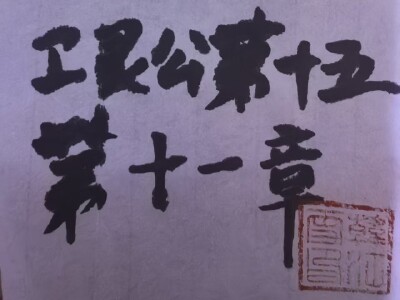 卫灵公第十五
第十一章